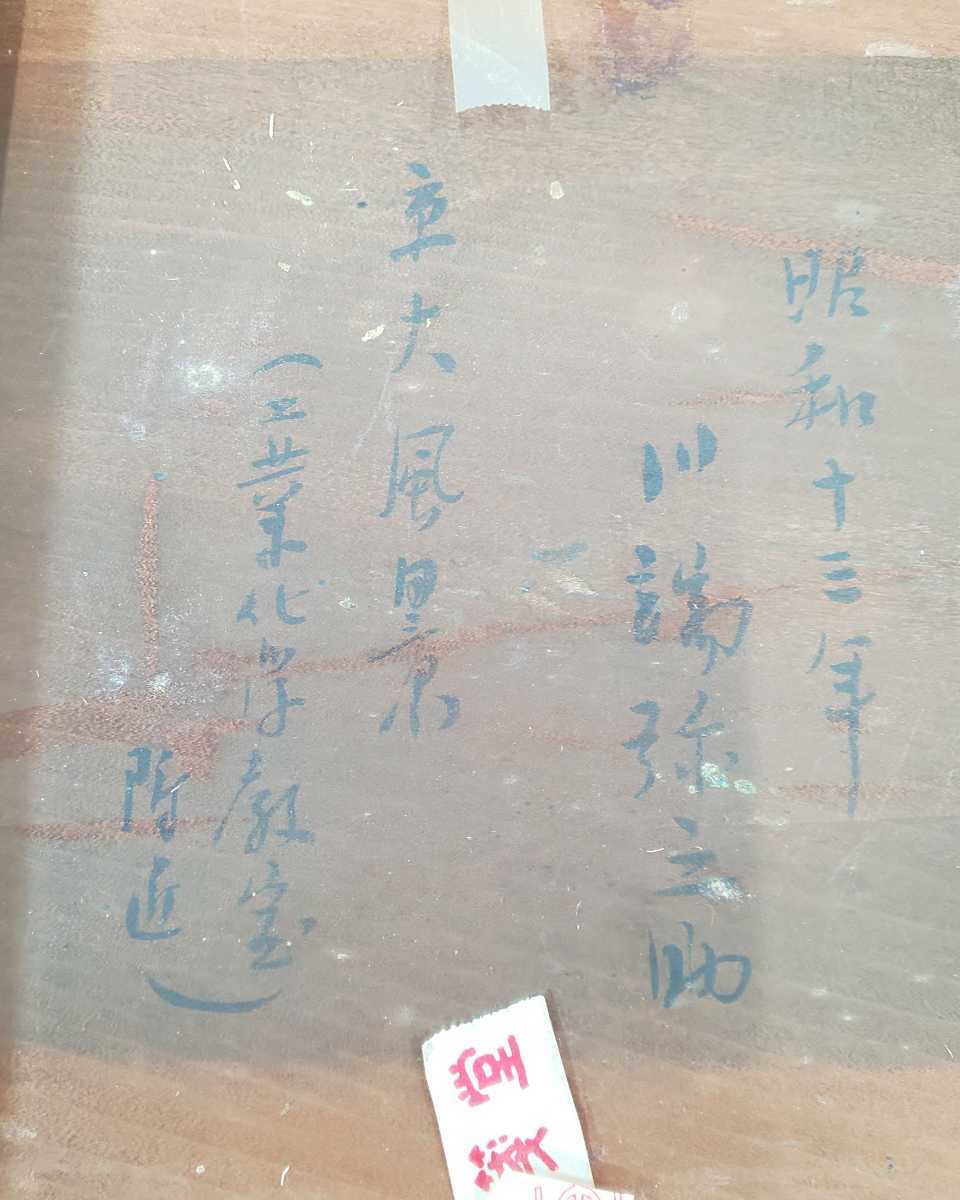 昭和十三年
川端弥之助
京大風景
(工業化学教室
附近)
堂